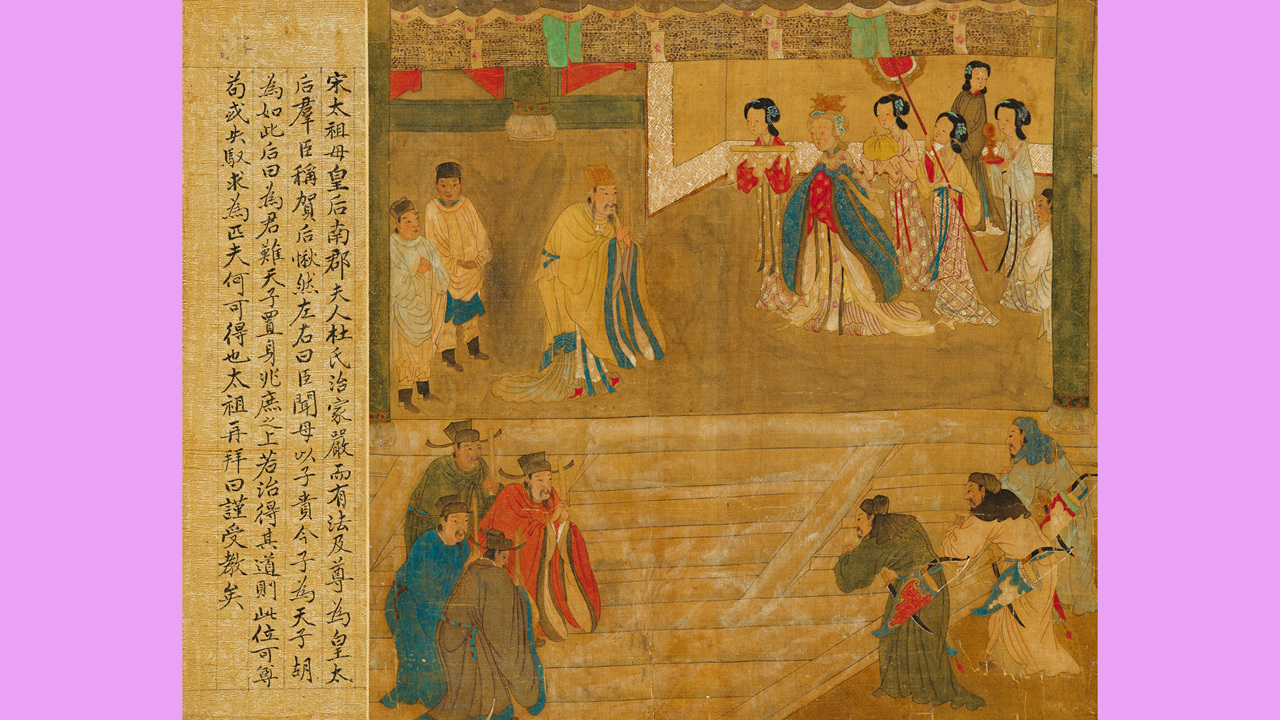 宋太祖母皇后南郡夫人杜氏治家嚴而有法及尊為皇太
后羣臣稱賀后愀然左右曰臣聞母以子貴今子為天子胡
為如此后曰為君難天子置身兆庶之上若治得其道則此位可尊
苟或失馭求為匹夫何可得也太祖再拜曰謹受教矣